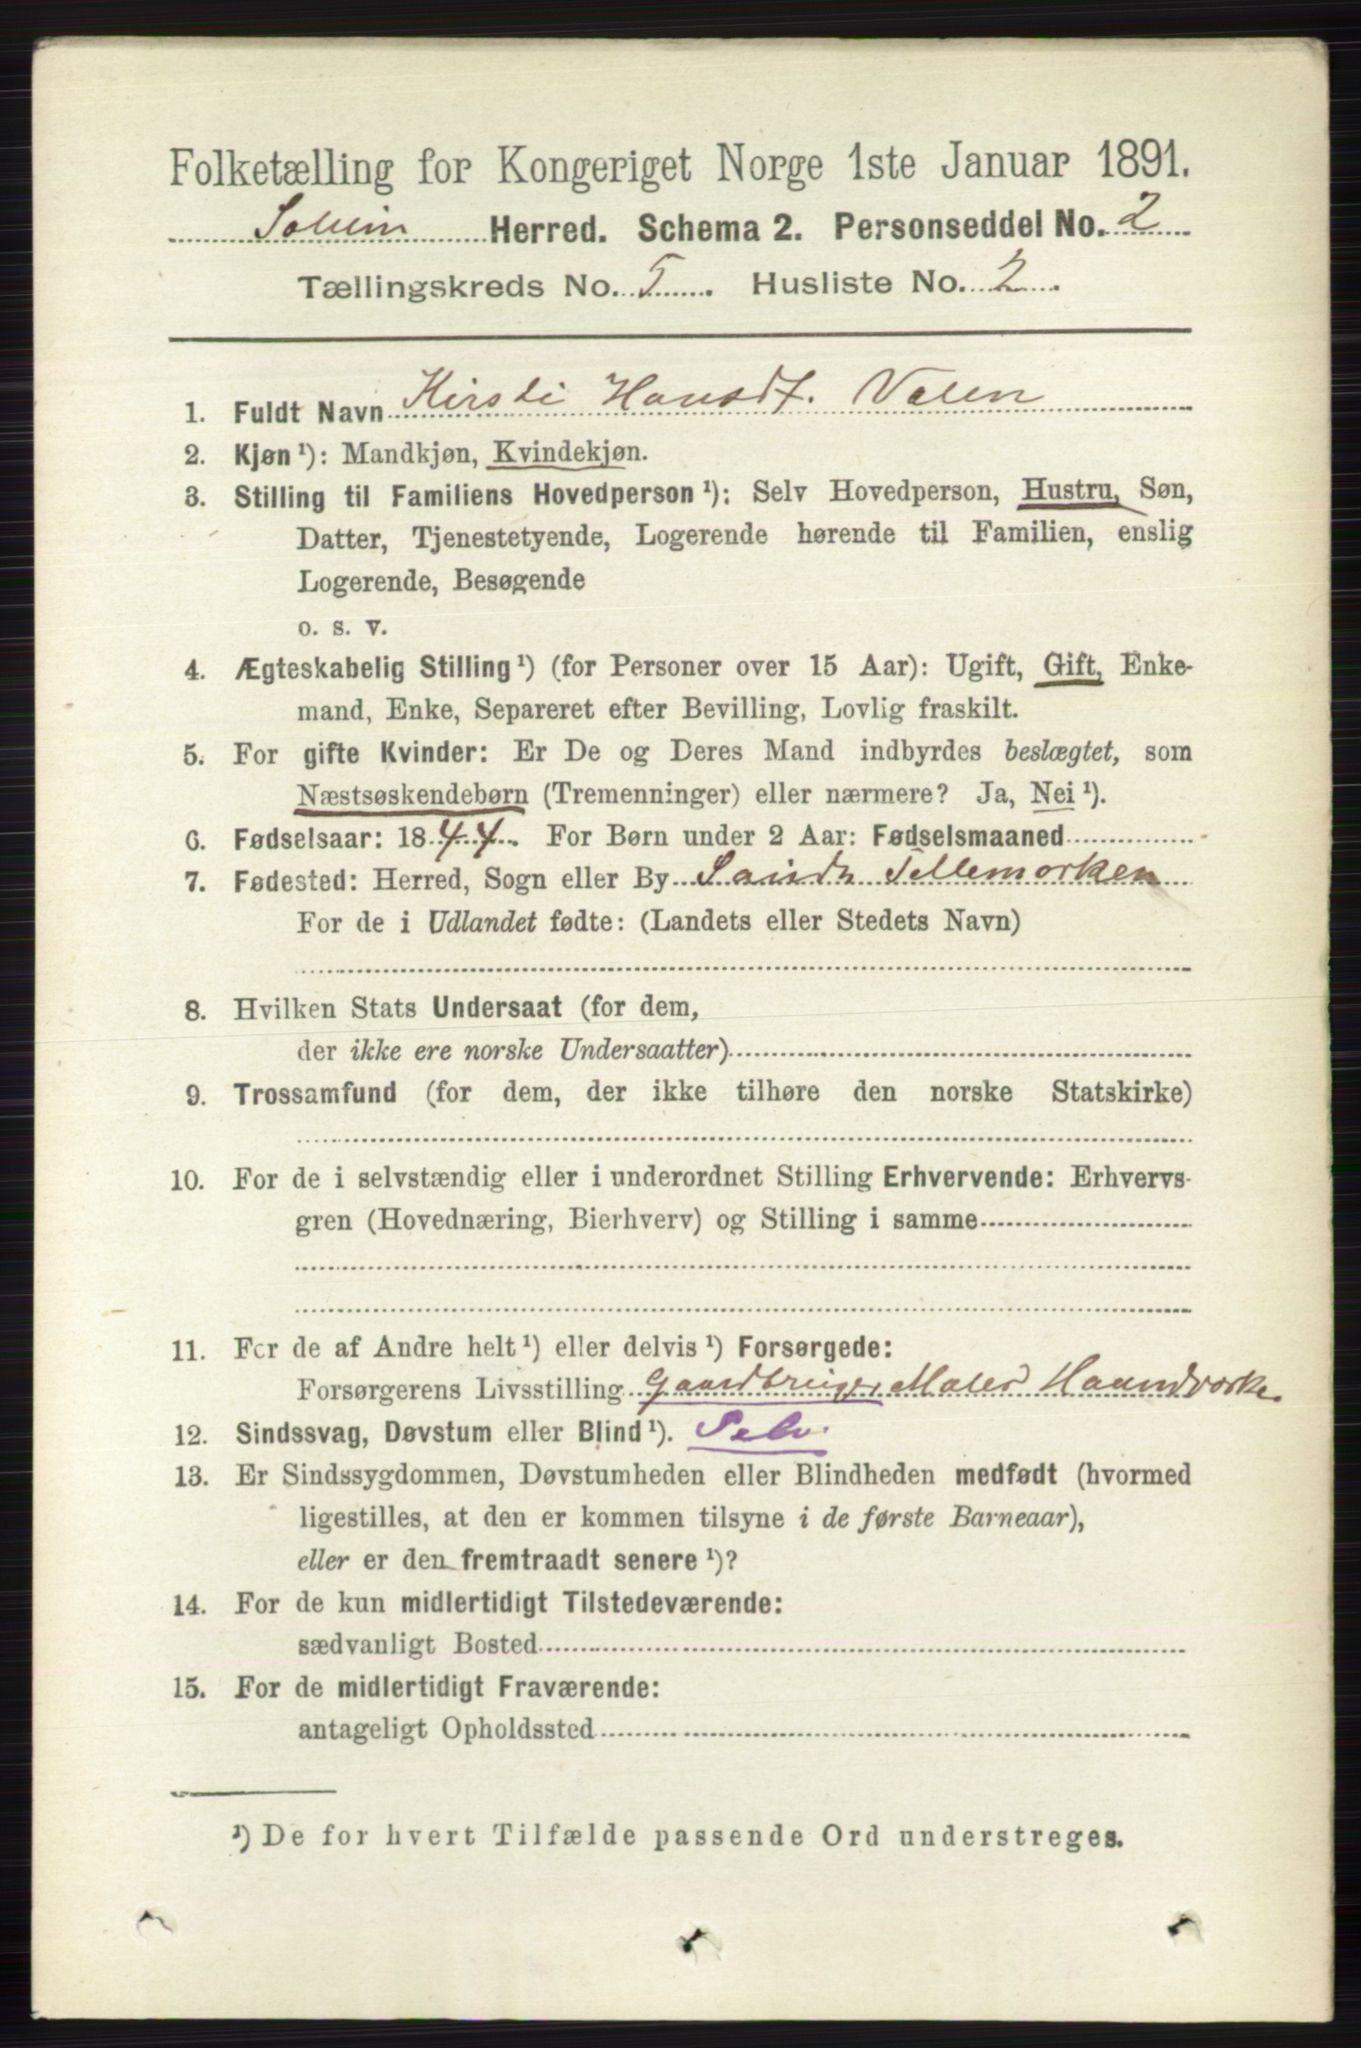 Folketælling for Kongeriget Norge 1ste Januar 1891.
Herred. Schema 2. Personseddel No. 2
Tællingskreds No. 5. Husliste No. 2.
1. Fuldt Navn Kirsti Hansdt. Valen
2. Kjøn ¹): Mandkjøn, Kvindekjøn.
3. Stilling til Familiens Hovedperson ¹): Selv Hovedperson, Hustru, Søn,
Datter, Tjenestetyende, Logerende hørende til Familien, enslig
Logerende, Besøgende
o. s. v.
4. Ægteskabelig Stilling ¹) (for Personer over 15 Aar): Ugift, Gift, Enke-
mand, Enke, Separeret efter Bevilling, Lovlig fraskilt.
5. For gifte Kvinder: Er De og Deres Mand indbyrdes beslægtet, som
Næstsøskendebørn (Tremenninger) eller nærmere? Ja, Nei ¹).
6. Fødselsaar: 1844. For Børn under 2 Aar: Fødselsmaaned
7. Fødested: Herred, Sogn eller By Tellemorken
For de i Udlandet fødte: (Landets eller Stedets Navn)
8. Hvilken Stats Undersaat (for dem,
der ikke ere norske Undersaatter)
9. Trossamfund (for dem, der ikke tilhøre den norske Statskirke)
10. For de i selvstændig eller i underordnet Stilling Erhvervende: Erhvervs-
gren (Hovednæring, Bierhverv) og Stilling i samme
11. For de af Andre helt ¹) eller delvis ¹) Forsørgede:
Forsørgerens Livsstilling Gaardbruger Maler
12. Sindssvag, Døvstum eller Blind ¹). Selv.
13. Er Sindssygdommen, Døvstumheden eller Blindheden medfødt (hvormed
ligestilles, at den er kommen tilsyne i de første Barneaar),
eller er den fremtraadt senere ¹)?
14. For de kun midlertidigt Tilstedeværende:
sædvanligt Bosted
15. For de midlertidigt Fraværende:
antageligt Opholdssted
¹) De for hvert Tilfælde passende Ord understreges.